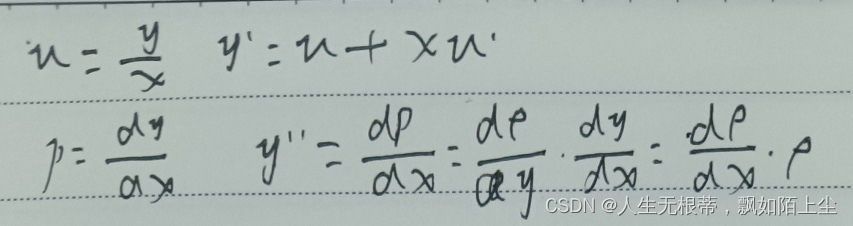 u = y/x  y' = u + xu'
p = dy/dx  y'' = dp/dx = dp/dy · dy/dx = dp/dx · p
CSDN @人生无根蒂，飘如陌上尘